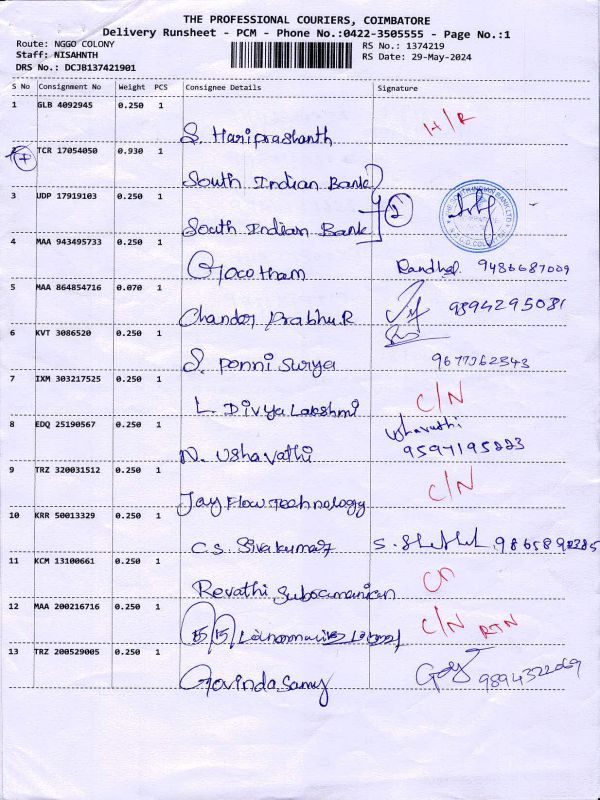 THE PROFESSIONAL COURIERS, COIMBATORE
Delivery Runsheet - PCM - Phone No.:0422-3505555 - Page No.:1
Route: NGGO COLONY RS No.: 1374219
Staff: NISAHNTH RS Date: 29-May-2024
DRS No.: DCJB137421901
S No Consignment No Weight PCS Consignee Details Signature
1 GLB 4092945 0.250 1
S. Hariprashanth H/R
TCR 17054050 0.930 1
South Indian Bank
3 UDP 17919103 0.250 1 2
South Indian Bank
4 MAA 943495733 0.250 1
Gocotham 9486687009
5 MAA 864854716 0.070 1
Chandor Prabhu.R 9894295081
6 KVT 3086520 0.250 1
S. Ponni Surya
7 IXM 303217525 0.250 1
L. Divya Lakshmi C/N
8 EDQ 25190567 0.250 1 Ushavathi
N. Ushavathi
9 TRZ 320031512 0.250 1 C/N
Jay Flow Technology
10 KRR 50013329 0.250 1
C.S. Sivakumar
11 KCM 13100661 0.250 1
Revathi Subramanian
12 MAA 200216716 0.250 1
C/N RTN
13 TRZ 200529005 0.250 1
Govindasamy